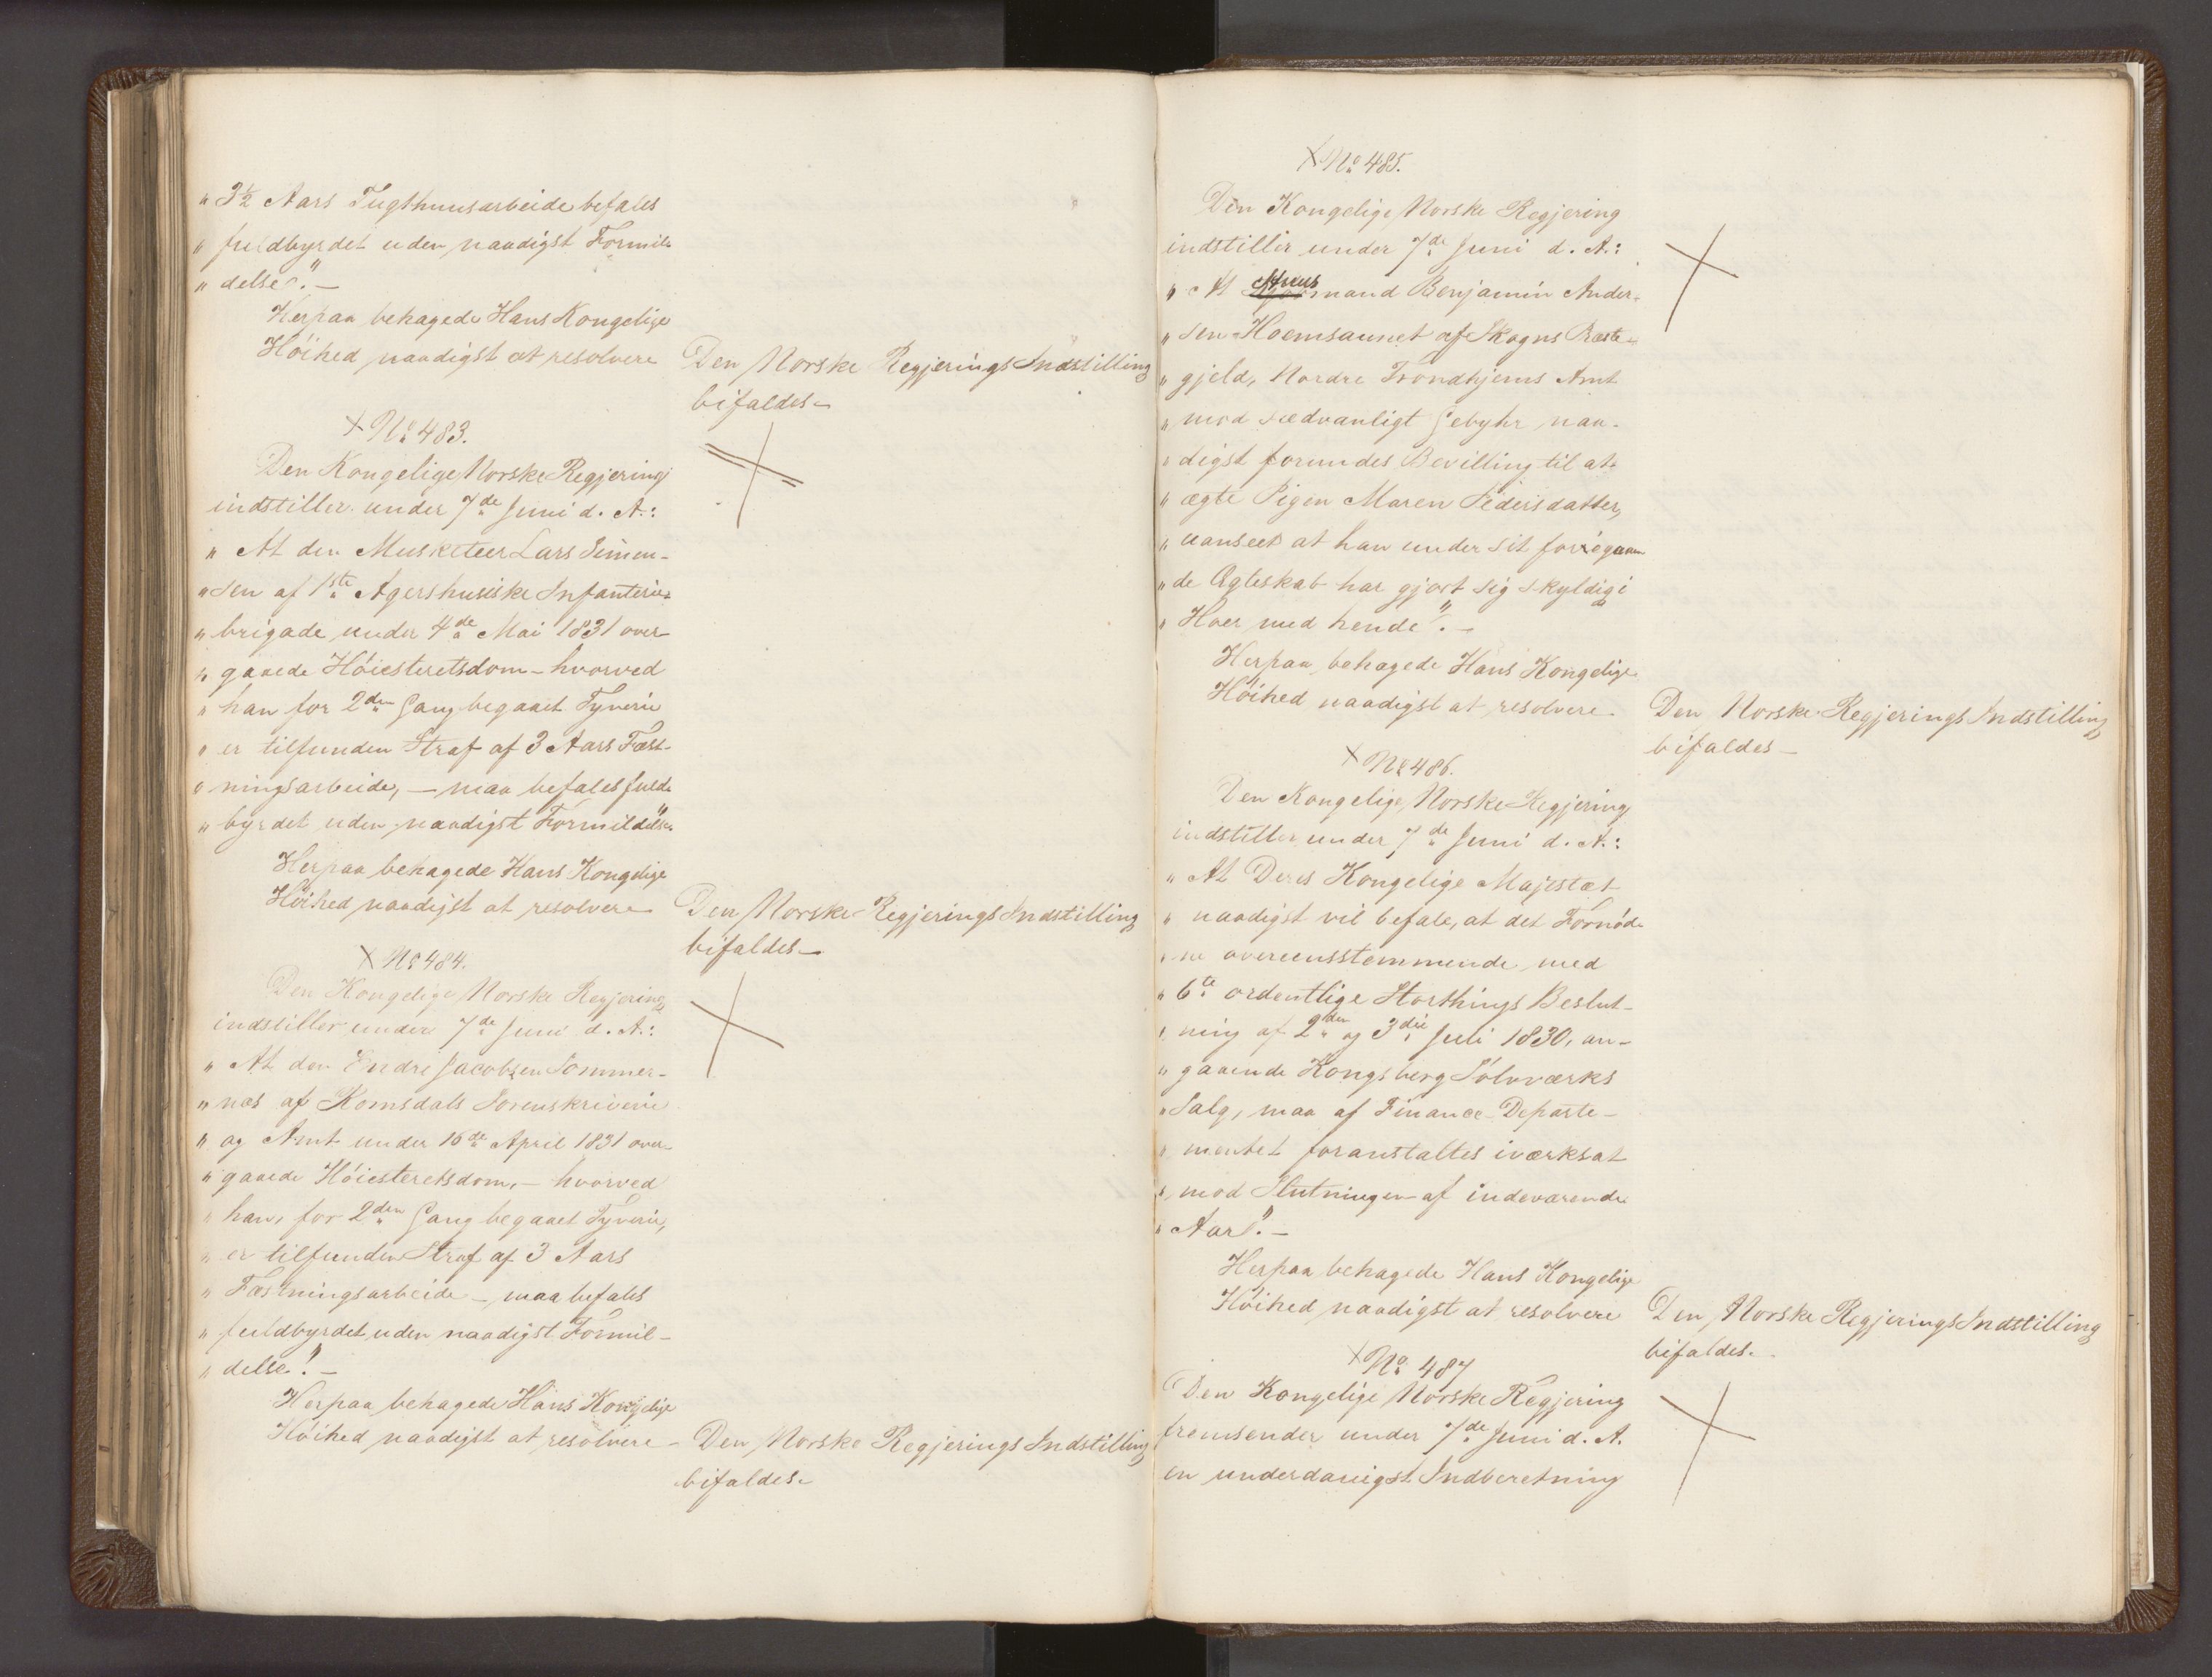 " 3½ Aars Tugthuusarbeide befales
" fuldbyrdet uden naadigst Formil-
" delse". —
Herpaa behagede Hans Kongelige
Höihed naadigst at resolvere
Den Norske Regjerings Indstilling
bifaldes —
No 483.
Den Kongelige Norske Regjering
indstiller under 7de Juni d. A.:
" At den Musketeer Lars Simen-
" sen af 1ste Agershusiske Infanterie-
" brigade under 4de Mai 1831 over-
" gaaede Höiesteretsdom — hvorved
" han for 2den Gang begaaet Tyverie
" er tilfunden Straf af 3 Aars Fæst-
" ningsarbeide, — maa befales fuld-
" byrdet uden naadigst Formildelse".
Herpaa behagede Hans Kongelige
Höihed naadigst at resolvere
Den Norske Regjerings Indstilling
bifaldes —
No 484.
Den Kongelige Norske Regjering
indstiller under 7de Juni d. A.:
" At den Endre Jacobsen Sommer-
" næs af Romsdals Sorenskriverie
" og Amt under 16de April 1831 over-
" gaaede Höiesteretsdom, — hvorved
" han, for 2den Gang begaaet Tyverie,
" er tilfunden Straf af 3 Aars
" Fæstningsarbeide — maa befales
" fuldbyrdet uden naadigst Formil-
" delse". —
Herpaa behagede Hans Kongelige
Höihed naadigst at resolvere —
Den Norske Regjerings Indstilling
bifaldes —
No 485.
Den Kongelige Norske Regjering
indstiller under 7de Juni d. A.:
" At Huusmand Benjamin Ander-
" sen Hoemsaunet af Skogns Præste-
" gjeld, Nordre Trondhjems Amt
" mod sædvanligt Gebyhr naa-
" digst forundes Bevilling til at
" ægte Pigen Maren Pedersdatter,
" uanseet at han under sit foregaaen-
" de Ægteskab har gjort sig skyldig i
" Hoer med hende". —
Herpaa behagede Hans Kongelige
Höihed naadigst at resolvere
Den Norske Regjerings Indstilling
bifaldes —
No 486.
Den Kongelige Norske Regjering
indstiller under 7de Juni d. A.:
" At Deres Kongelige Majestæt
" naadigst vil befale, at det Fornød-
" ne overeensstemmende med
" 6te ordentlige Storthings Beslut-
" ning af 2den og 3die Juli 1830, an-
" gaaende Kongsberg Sölvværks
" Salg, maa af Finance-Departe-
" mentet foranstaltes iværksat
" mod Slutningen af indeværende
" Aar". —
Herpaa behagede Hans Kongelige
Höihed naadigst at resolvere
Den Norske Regjerings Indstilling
bifaldes.
No 487
Den Kongelige Norske Regjering
fremsender under 7de Juni d. A.
en underdanigst Indberetning